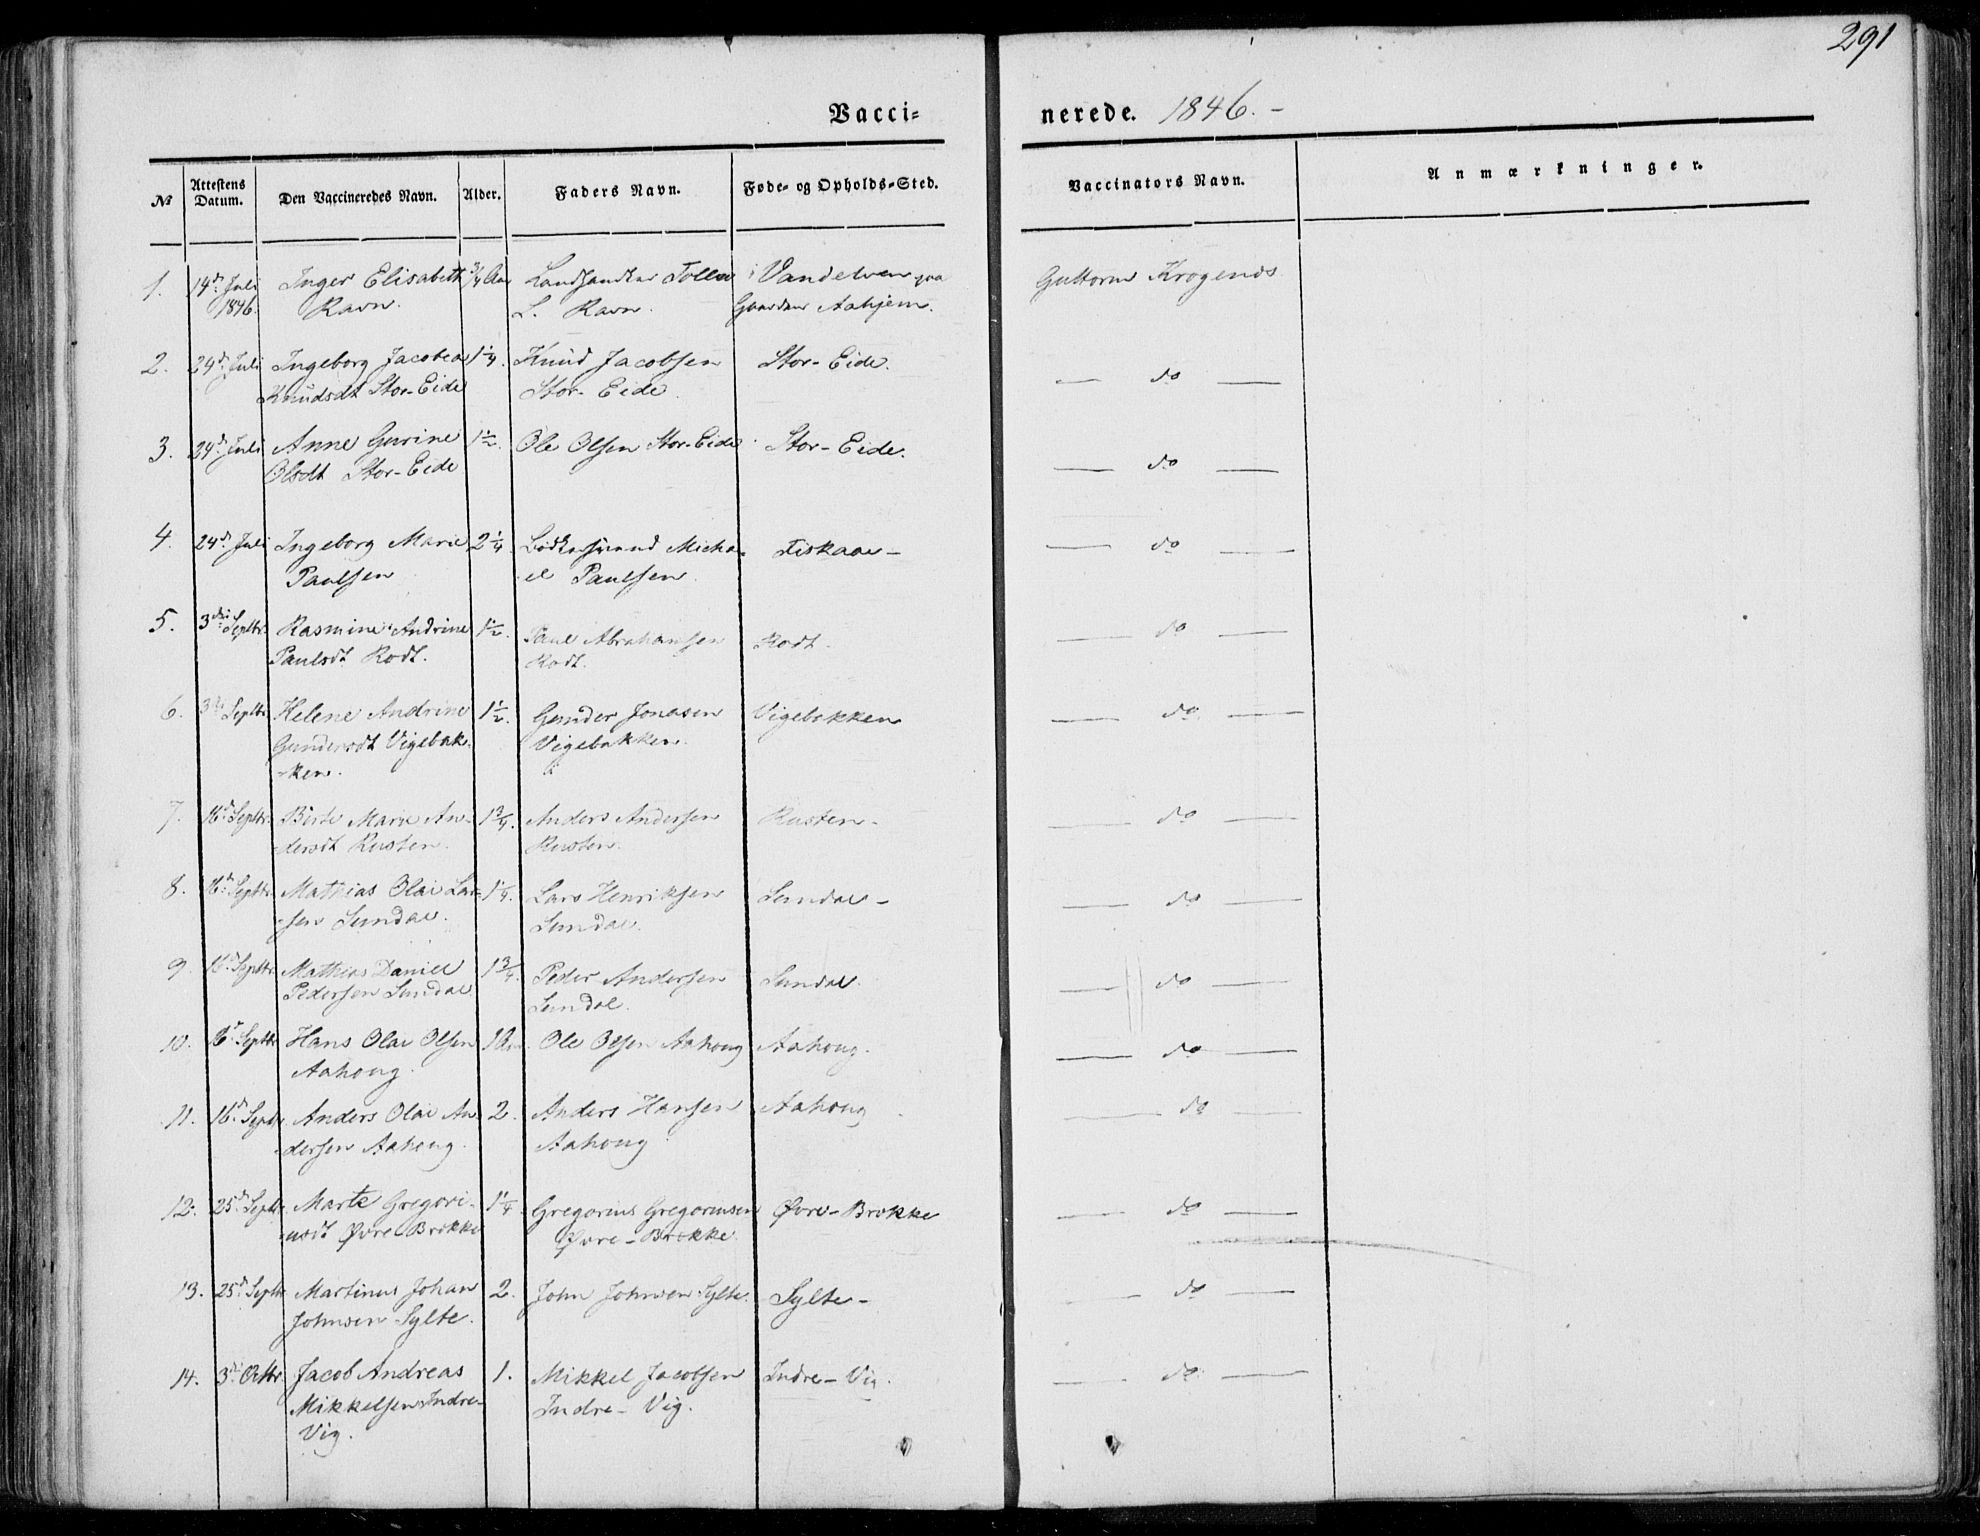 291
Vacci= nerede. 1846.-
No Attestens Datum. Den Vaccineredes Navn. Alder. Faders Navn. Føde- og Opholds-Sted. Vaccinators Navn. Anmærkninger.
1. 14d. Juli Inger Elisabeth 3/4 Aar Tolleu i Vandelven paa Guttorm Krogenæs
1846. Ravn. L. Ravn. Gaarden Aahjem.
2. 24d. Juli Ingeborg Jacobea 1 1/4. Knud Jacobsen Stor-Eide. — do —
Knudsdt Stor-Eide Stor-Eide.
3. 24d. Juli Anne Gurine 1 1/2. Ole Olsen Stor-Eide Stor-Eide. — do —
Olsdt Stor-Eide
4. 24d. Juli Ingeborg Marie 2 1/4 Bødkersvend Micha- Fiskaae- — do —
Paulsen el Paulsen.
5. 3die Septbr. Rasmine Andrine 1 1/2. Paul Abrahamsen Rodt. — do —
Paulsdt Rodt. Rodt.
6. 3die Septbr. Helene Andrine 1 1/2. Gunder Jonasen Vigebakken — do —
Gundersdt Vigebak- Vigebakken.
-ken.
7. 16d. Septbr. Birte Marie An- 1 3/4. Anders Andersen Rusten- — do —
-dersdt Rusten. Rusten.
8. 16d. Septbr. Mathias Olai Lar- 1 1/4. Lars Henriksen Sundal- — do —
-sen Sundal. Sundal.
9. 16d. Septbr. Mathias Daniel 1 3/4. Peder Andersen Sundal. — do —
Pedersen Sundal Sundal.
10. 16d. Septbr. Hans Olai Olsen 1 Aar. Ole Olsen Aahoug Aahoug. — do —
Aahoug.
11. 16d. Septbr. Anders Olai An- 2. Anders Hansen Aahoug — do —
-dersen Aahoug. Aahoug.
12. 25d. Septbr. Marte Gregori- 1 1/4. Gregorius Gregoriusen Øvre-Brekke — do —
-usdt Øvre Brekke Øvre-Brekke.
13. 25d. Septbr. Martinus Johan 2. John Johnsen Sylte. Sylte- — do —
Johnsen Sylte.
14. 3die Octbr. Jacob Andreas 1. Mikkel Jacobsen Indre-Vig. — do —
Mikkelsen Indre- Indre-Vig.
Vig.